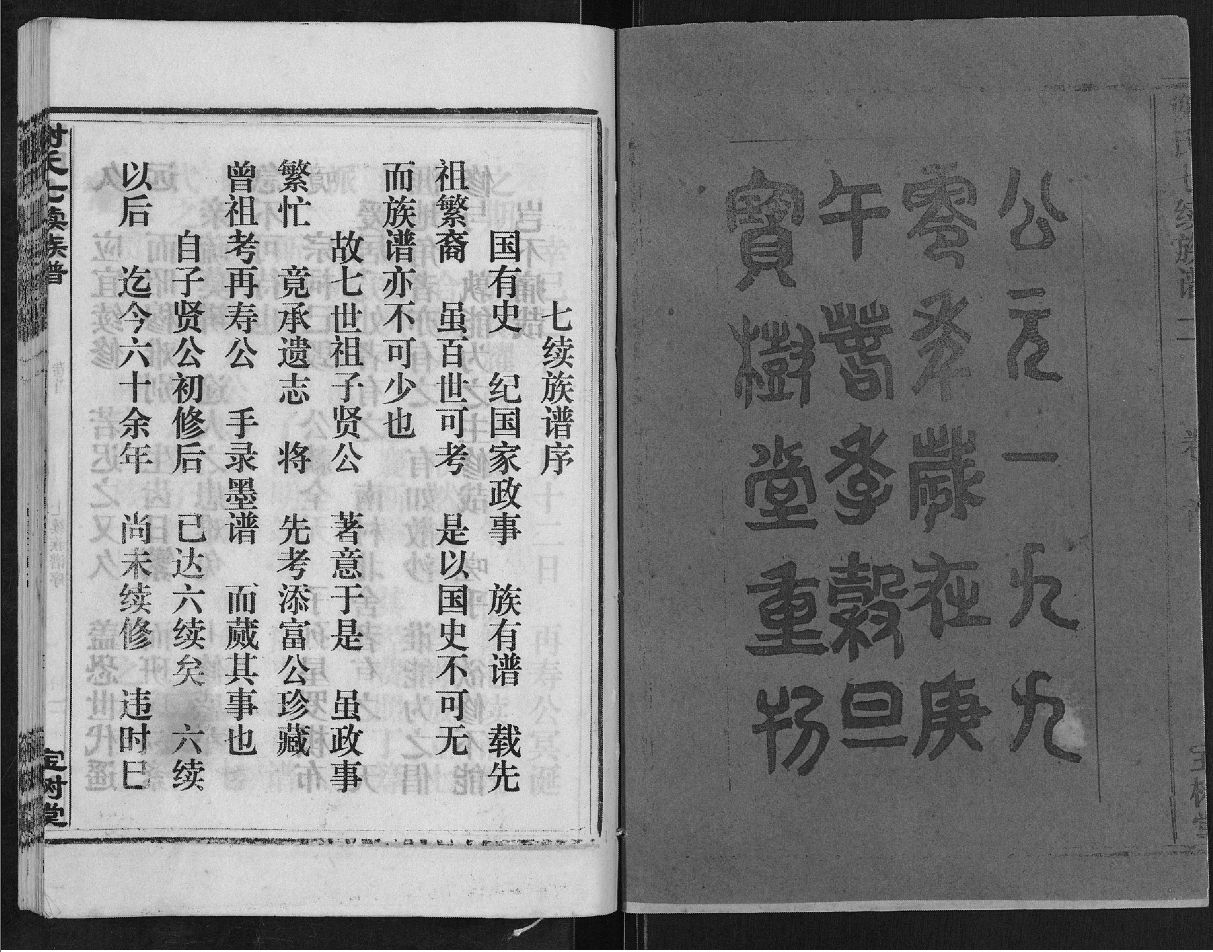 公元一九九
零年岁在庚
午暮季穀旦
寶樹堂重物
七续族谱序
国有史 纪国家政事 族有谱 载先
祖繁裔 虽百世可考 是以国史不可无
而族谱亦不可少也
故七世祖子贤公 著意于是 虽政事
繁忙 竟承遗志 将 先考添富公珍藏
曾祖考再寿公 手录墨谱 而蒇其事也
自子贤公初修后 已达六续矣 六续
以后 迄今六十余年 尚未续修 违时巳
谢氏七续族谱
宝树堂